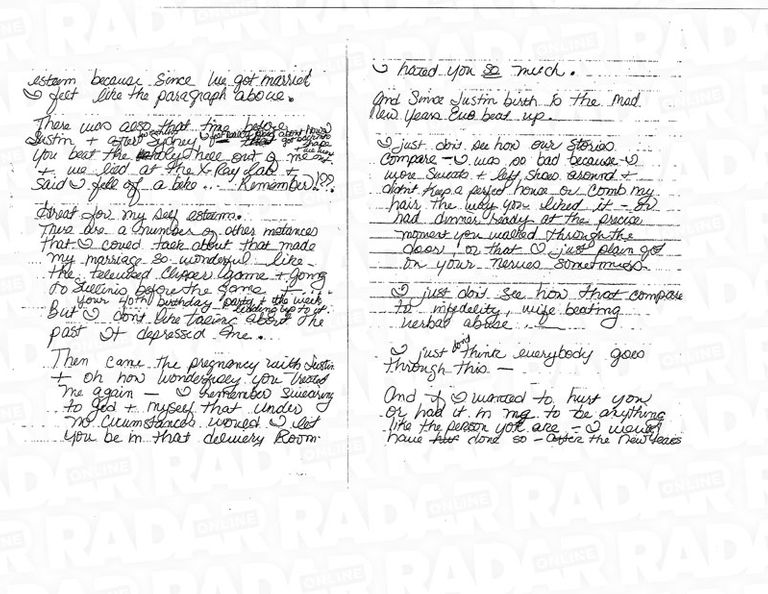 esteem because since we got married
I felt like the paragraph above.
There was also that time before
Justin + after Sydney
You beat the holy hell out of me and
+ we lied at the X-Ray lab +
said I fell off a bike... Remember!??
Great for my self esteem.
There are a number of other instances
that I could talk about that made
my marriage so wonderful like -
the televised Clipper game + going
to before the game +...
your 40th birthday party + the week
leading up to it.
But I don't like talking about the
past It depressed me..
Then came the pregnancy with Justin
+ oh how wonderfully you treated
me again - I remember swearing
to god + myself that under
no circumstances would I let
you be in that delivery Room
I hated you so much.
And since Justin birth to the mad
New Years Eve beat up.
I just don't see how our stories
compare - I was so bad because I
wore sweats + left shoes around +
didn't keep a perfect house or comb my
hair the way you liked it - or
had dinner ready at the precise
moment you walked through the
door, or that I just plain got
on your nerves sometimes.
I just don't see how that compare
to infidelity, wife beating
verbal abuse
I just don't think everybody goes
through this -
And if I wanted to hurt you
or had it in me to be anything
like the person you are - I would
have done so - after the New Years
RADAR
ONLINE